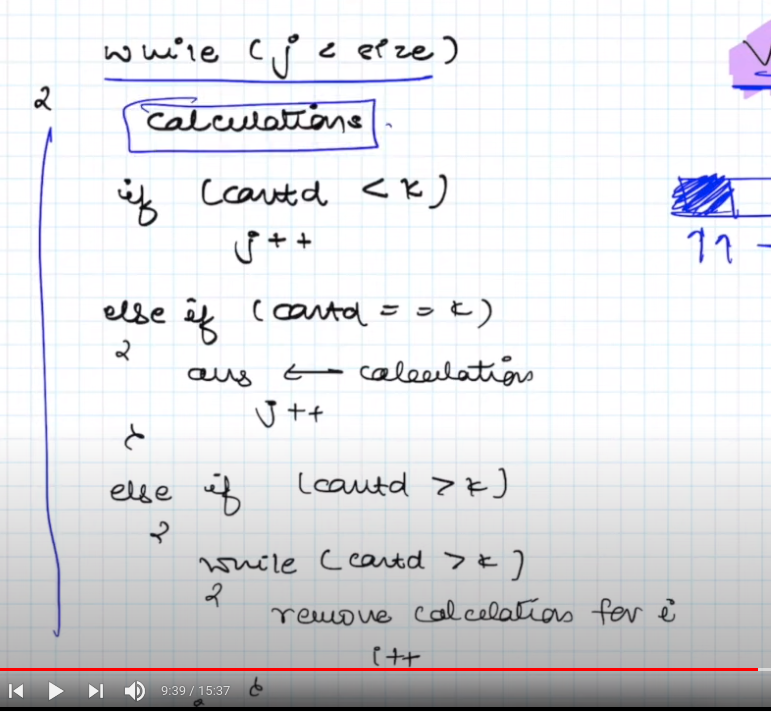 while (j < size)
{
calculations
if (condt <k)
j++
else if (condt == k)
{
ans ← calculation
j++
}
else if (condt >k)
{
while (condt >k)
{
remove calculation for i
i++
}
9:39 / 15:37